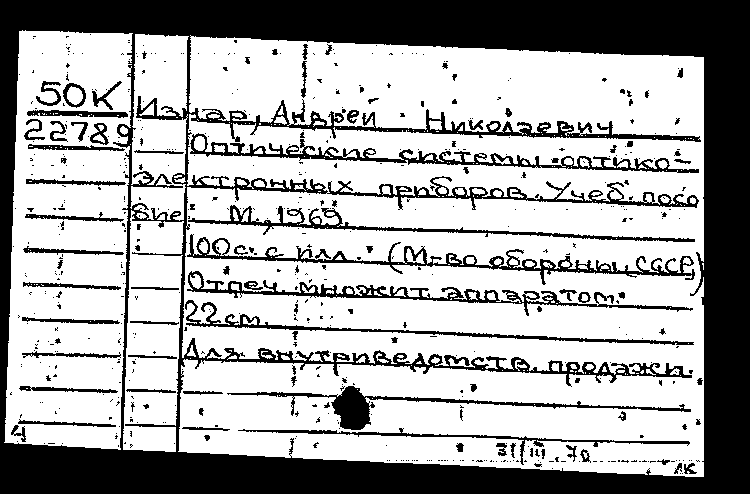 50К Изнар, Андрей Николаевич
22789 Оптические системы оптико-
электронных приборов. Учеб. посо
бие. М., 1969.
100с. с илл. (М-во обороны СССР)
Отпеч. множит. аппаратом.
22см.
Для внутриведомств. продажи.
4 31/III.70
ЛК